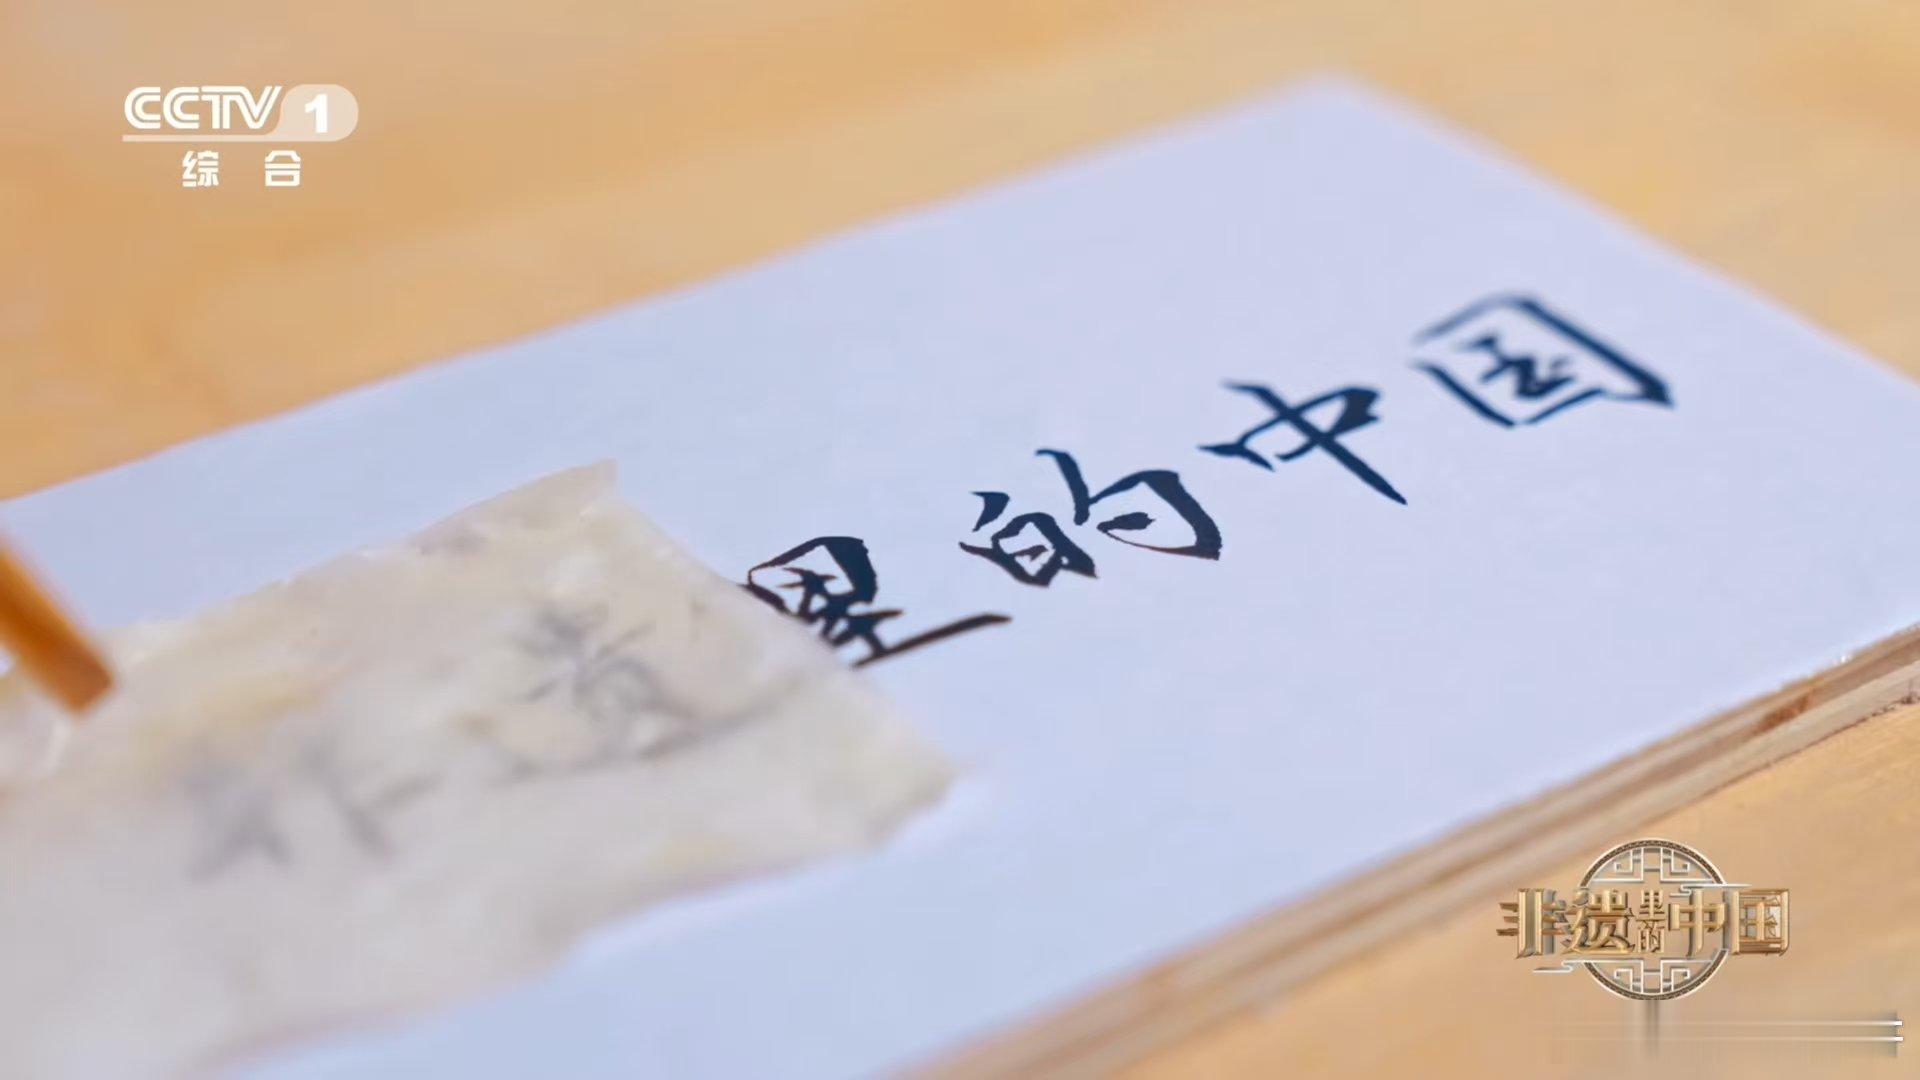 CCTV 1
综合
非遗里的中国
非遗里的中国